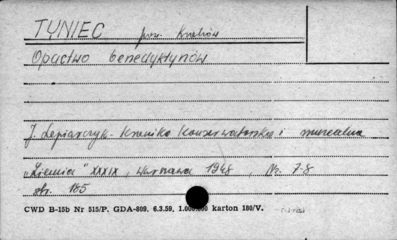 TYNIEC pow. Kraków
Opactwo benedyktynów
J. Lepiarczyk - Kronika Konserwatorska i muzealna
„Ziemia" XXXIX, Warszawa 1948, Nr. 7-8
str. 165
CWD B-15b Nr 515/P. GDA-809. 6.3.59. 1.000.000 karton 180/V.